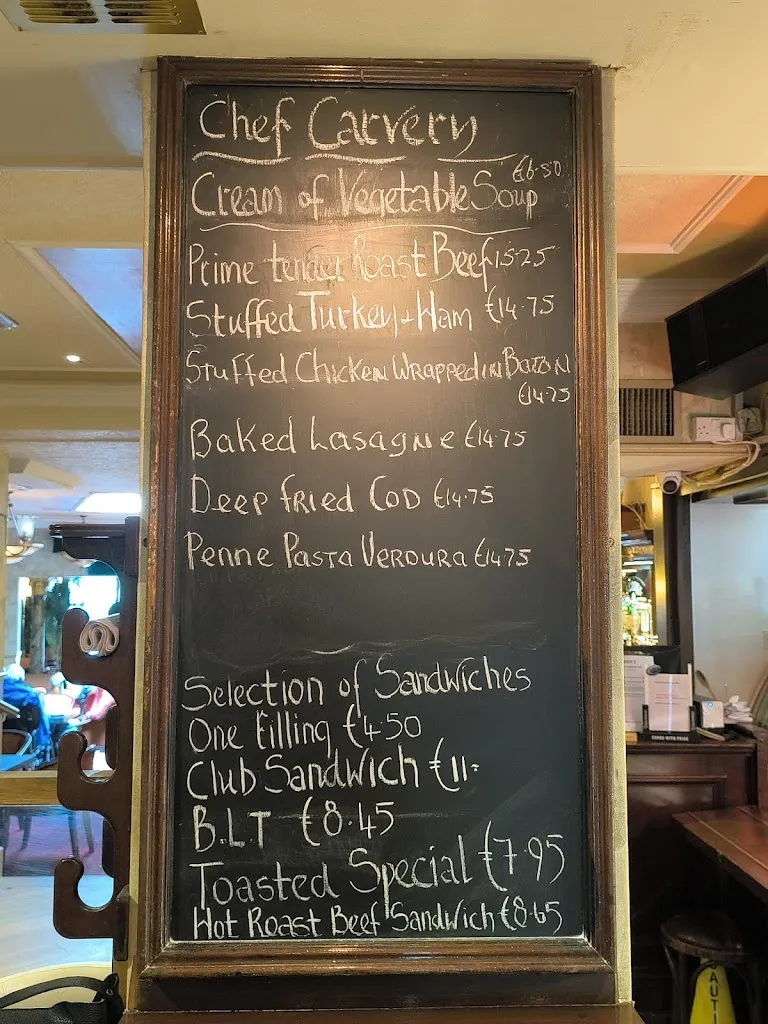 Chef Carvery
€6.50
Cream of Vegetable Soup
Prime tender Roast Beef 15.25
Stuffed Turkey + Ham €14.75
Stuffed Chicken Wrapped in Bacon
€14.75
Baked Lasagne €14.75
Deep fried Cod €14.75
Penne Pasta Verdura €14.75
Selection of Sandwiches
One Filling €4.50
Club Sandwich €11.-
B.L.T €8.45
Toasted Special €7.95
Hot Roast Beef Sandwich €8.65